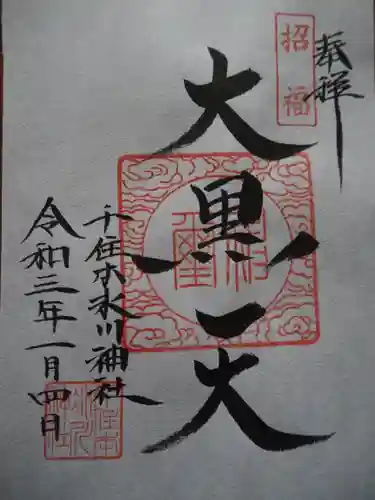 奉拝
招福
大黒天
千住本氷川神社
令和三年一月四日